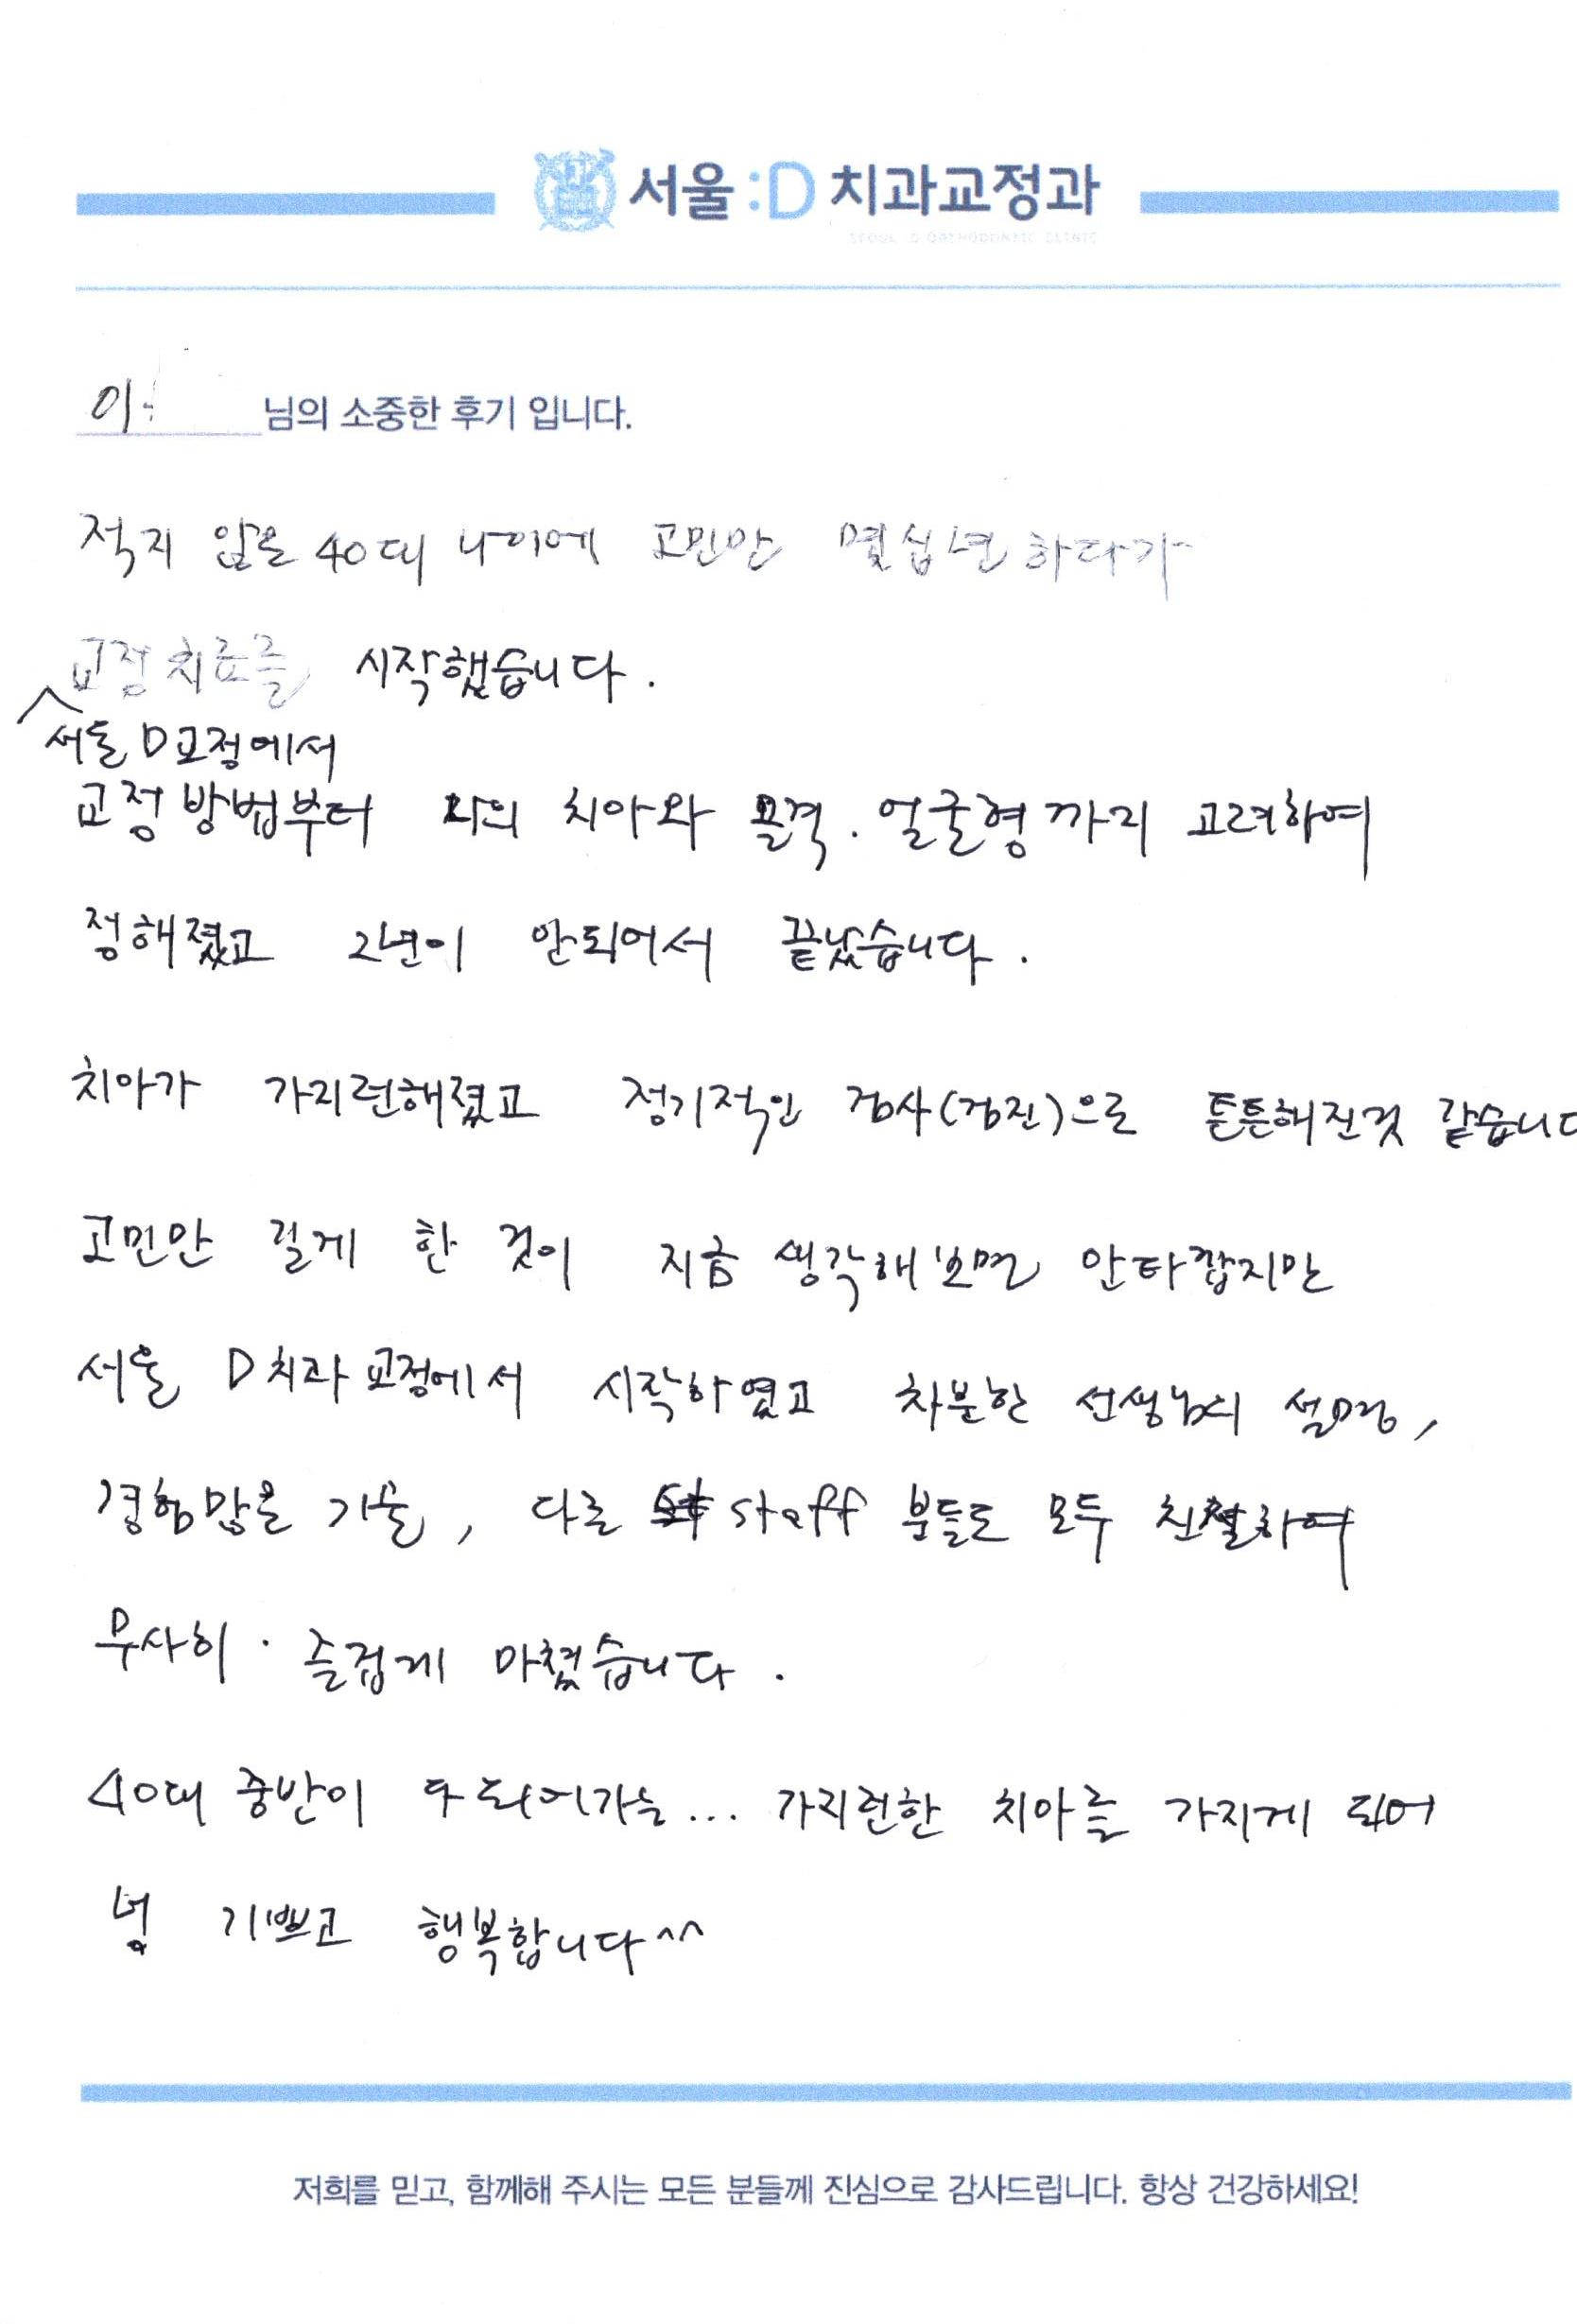 서울:D 치과교정과
SEOUL :D ORTHODONTIC CLINIC
이 님의 소중한 후기 입니다.
적지 않은 40대 나이에 고민만 몇십년 하다가
교정치료를 시작했습니다.
서울 D교정에서
교정방법부터 나의 치아와 골격. 얼굴형까지 고려하여
정해졌고 2년이 안되어서 끝났습니다.
치아가 가지런해졌고 정기적인 검사(검진)으로 튼튼해진것 같습니다
고민만 길게 한 것이 지금 생각해보면 안타깝지만
서울 D치과교정에서 시작하였고 차분한 선생님의 설명,
경험많은 기술, 다른 staff 분들도 모두 친절하여
무사히·즐겁게 마쳤습니다.
40대 중반이 다 되어가는... 가지런한 치아를 가지게 되어
넘 기쁘고 행복합니다^^
저희를 믿고, 함께해 주시는 모든 분들께 진심으로 감사드립니다. 항상 건강하세요!